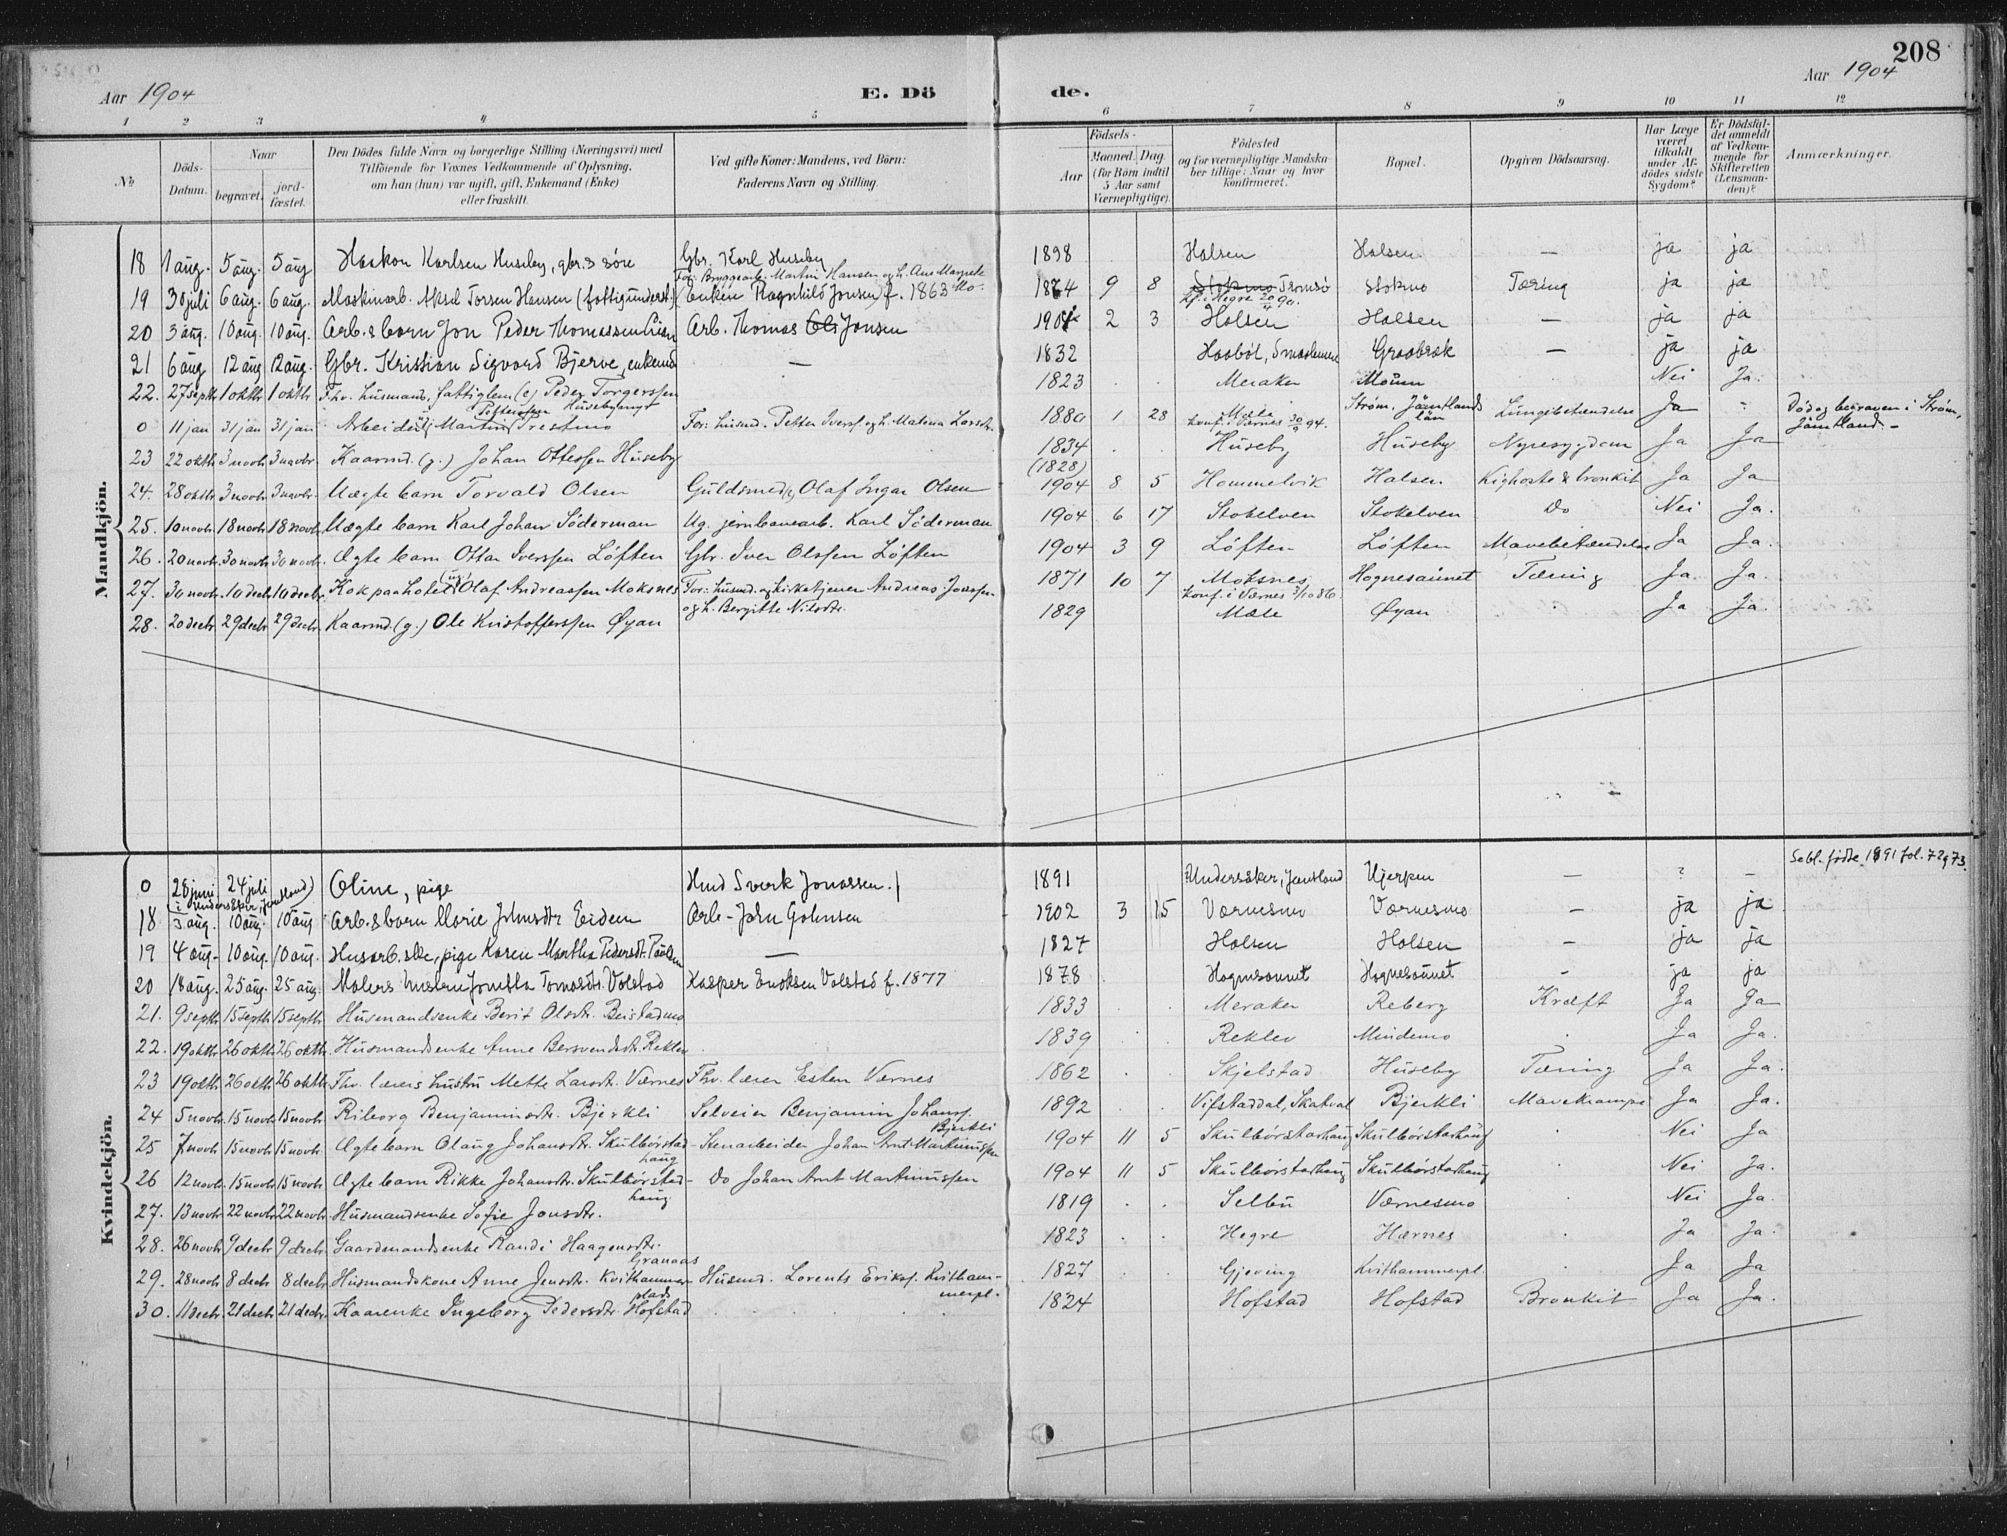 208
Aar 1904
E. Dö
de.
Aar 1904
1 2 3 4 5 6 7 8 9 10 11 12
No.
Döds-Datum.
Naar
begravet.
jord-fæstet.
Den Dödes fulde Navn og borgerlige Stilling (Næringsvei) med
Tilföiende for Voxnes Vedkommende af Oplysning,
om han (hun) var ugift, gift, Enkemand (Enke)
eller fraskilt.
Ved gifte Koner: Mandens, ved Börn:
Faderens Navn og Stilling.
Födsels-
Aar
Maaned. Dag.
(for Børn indtil
5 Aar samt
Værnepligtige).
Födested
og for værnepligtige Mandska-
ber tillige: Naar og hvor
konfirmeret.
Bopæl.
Opgiven Dödsaarsag.
Har Læge
været
tilkaldt
under Af-
dödes sidste
Sygdom?
Er Dödsfal-
det anmeldt
af Vedkom-
mende for
Skifteretten
(Lensman-
den)?
Anmærkninger.
Mandkjön.
18 1 aug. 5 aug. 5 aug Haakon Karlsen Huseby, gbr.s søn Gbr. Karl Huseby 1898 Halsen Halsen. — ja ja
For: Bryggearb. Martin Hansen og h. Ane Margrete
19 30 juli 6 aug. 6 aug. Maskinarb. Aksel Torsen Hansen (fattigunderst.) Enken Ragnhild Jonsen f. 1863 1874 9 8 Stokmo Tromsø Stokmo Tæring ja ja
kf. i Hegre 20/4 90.
20 3 aug. 10 aug. 10 aug. Arb.s barn Jon Peder Thomassen Arb. Thomas Ols Jonsen 1904 2 3 Halsen Halsen — ja ja
21 6 aug 12 aug 12 aug. Gbr. Kristian Sigvard Bjerve, enkemd — 1832 Haabøl, Smaalenene Graabræk — ja ja
22. 27 septb 1 oktbr 1 oktbr Fhv. husmand, fattiglem (e) Peder Torgerssen 1823 . . Meraker Moum . Nei Ja.
Husebymyr
0 11 jan 31 jan 31 jan Arbeider Martin Pettersen Trestmo For: husmd. Petter Iversf. og h. Malena Larsdtr. 1880 1 28 Mæle Strøm, Jämtlands län Lungebetændelse Ja - Död og begraven i Strøm, Jämtland.-
konf. i Værnes 30/9 94.
23 22 oktbr 3 novbr 3 novbr. Kaarmd. (g.) Johan Ottessen Huseby 1834 . . Huseby Huseby Nyresygdom Ja Ja
(1828)
24. 28 oktbr. 3 novbr. 3 novbr. Uægte barn Torvald Olsen Guldsmed Olaf Ingar Olsen 1904 8 5 Hommelvik Halsen Kighoste & bronkit Ja Ja
25. 10 novbr. 18 novbr. 18 novbr. Uægte barn Karl Johan Söderman Ug. jernbanearb. Karl Söderman 1904 6 17 Stokelven Stokelven Do Nei Ja.
26. 20 novbr. 30 novbr. 30 novbr. Ægte barn Ottar Iverssen Løften Gbr. Iver Olssen Løften 1904 3 9 Løften Løften Mavebetændelse Ja Ja.
27. 30 novbr. 10 decbr. 10 decbr. Kok paa hotel (ug) Olaf Andreassen Moksnes For: husmd. og kirketjener Andreas Jonssen 1871 10 7 Moksnes, Hognesaunet Tæring Ja. Ja.
og h. Bergitte Nilsdtr. konf. i Værnes 3/10 86.
28. 20 decbr. 29 decbr. 29 decbr. Kaarmd. (g.) Ole Kristofferssen Øyan 1829 Mæle Øyan . Ja Ja.
Kvindekjön.
Se bl. fødte 1891 fol. 72 og 73.
0 28 juni 24 juli Oline, pige Hmd Sverk Jonassen. 1891 Undersaker, Jemtland Hjerpen — ? —
i Undersaker, Jemtland)
18 3 aug. 10 aug. 10 aug. Arb.s barn Marie Johnsdtr Eidem Arb- John Golensen 1902 3 15 Værnesmo Værnesmo — ja ja
19 4 aug- 10 aug. 10 aug. Husarb.ske, pige Karen Martha Pedersdt. Paulsen — 1827 Halsen Halsen — ja ja
20 18 aug. 25 aug. 25 aug. Malers hustru Jonetta Tomasdtr. Volstad Kasper Enoksen Volstad f. 1877 1878 Hognesaunet Hognesaunet - ja ja
21. 9 septbr 15 septbr 15 septbr Husmandsenke Berit Olsdtr. Beistadmo 1833 . . Meraker Reberg Kræft Ja Ja
22. 19 oktbr 26 oktbr 26 oktbr. Husmandsenke Anne Bersvendsdt. Reklev 1839 . . Reklev Mindemo . Ja Ja.
23 19 oktbr 26 oktbr 26 oktbr Fhv. lærers hustru Mette Larsdt. Værnes Fhv. lærer Esten Værnes 1862 . . Skjelstad Huseby Tæring Ja Ja.
24 5 novbr. 15 novbr. 15 novbr. Riborg Benjaminsdtr. Bjerkli Selveier Benjamin Johansf. Bjerkli 1892 . . Vifstaddal, Skatval Bjerkli Mavekrampe Ja Ja.
25 7 novbr 15 novbr 15 novbr Ægte barn Olaug Johansdt. Skulbørstad-haug Stenarbeider Johan Arnt Martinussen 1904 11 5 Skulbørstadhaug Skulbørstadhaug . Nei Ja
26 12 novbr. 15 novbr 15 novbr Ægte barn Rikke Johansdt. Skulbørstad-haug Do Johan Arnt Martinussen 1904 11 5 Skulbørstadhaug Skulbørstadhaug . Nei Ja.
27. 13 novbr 22 novbr 22 novbr. Husmandsenke Sofie Jonsdtr. 1819 . . Selbu Værnesmo . Nei Ja.
28. 26 novbr 9 decbr 9 decbr. Gaardmandsenke Randi Haagensdtr. Granaas 1823 . . Hegre Hærnes . Ja Ja.
29. 28 novbr 8 decbr 8 decbr. Husmandskone Anne Jensdtr. Kvithammer-plads Husmd. Lorents Eriksf. Kvitham-merpl. 1827 . . Gjeving Kvithammerpl. . Ja Ja
30. 11 decbr. 21 decbr 21 decbr. Kaarenke Ingeborg Pedersdtr. Hofstad . . . 1824 Hofstad Hofstad Bronkit Ja Ja.